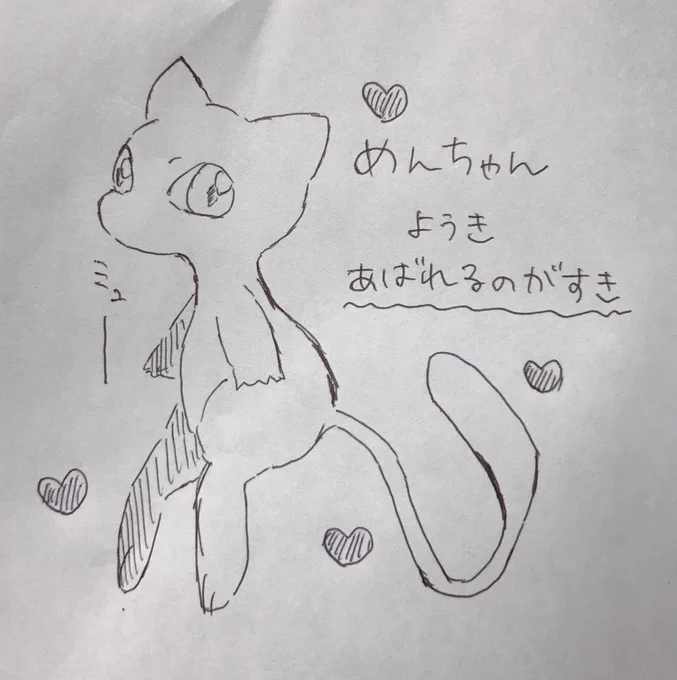 めんちゃん
ようき
あばれるのがすき
ミュー